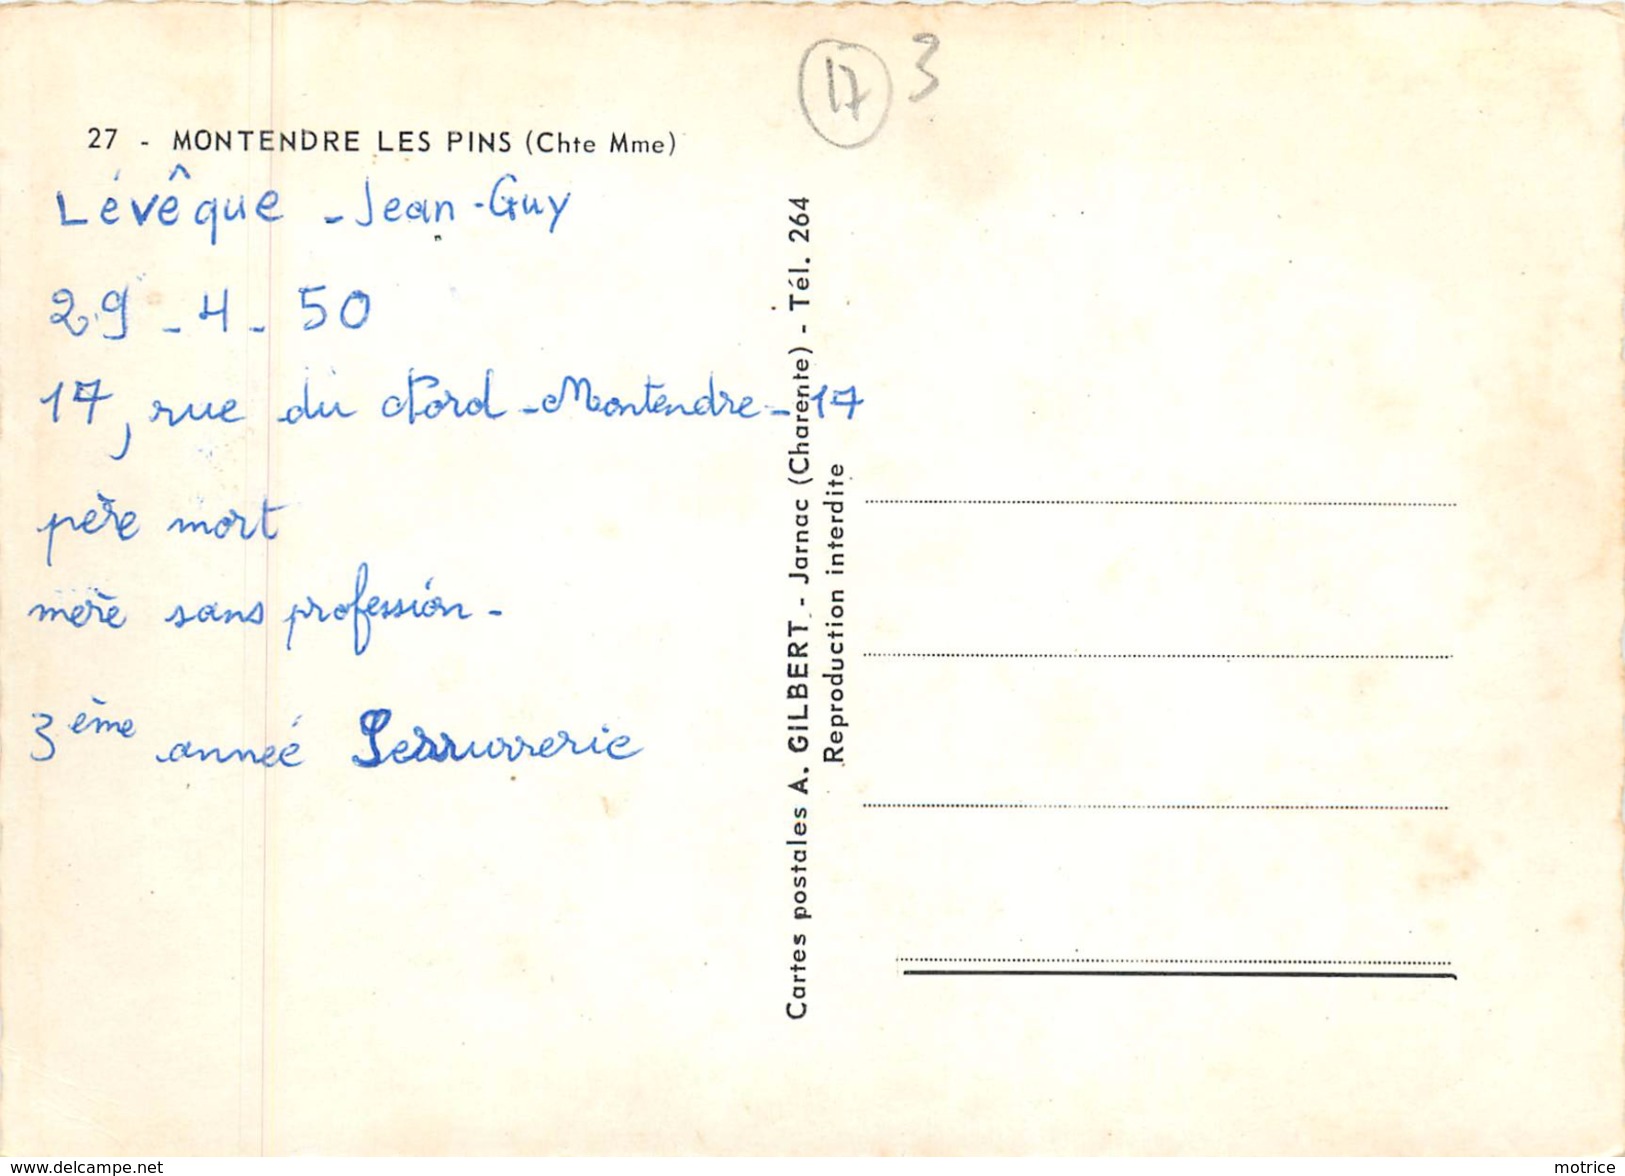 17 3
27 - MONTENDRE LES PINS (Chte Mme)
Lévêque - Jean-Guy
29 - 4 - 50
17, rue du Nord - Montendre - 17
père mort
mère sans profession -
3ème année Serrurrerie
Cartes postales A. GILBERT - Jarnac (Charente) - Tél. 264
Reproduction interdite
www.delcampe.net
motrice